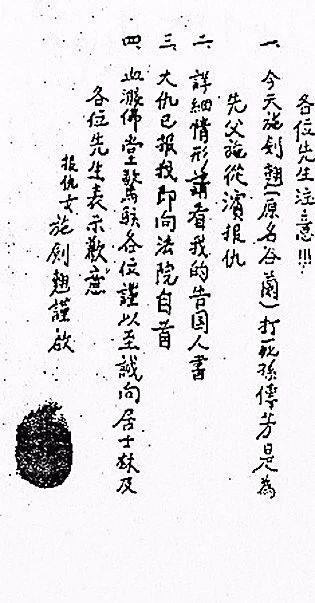 各位先生注意!!!
一、今天施剑翘(原名谷蘭)打死孫傳芳是為
先父施從濱報仇
二、詳細情形請看我的告国人書
三、大仇已報我即向法院自首
四、血濺佛堂驚駭各位謹以至誠向居士林及
各位先生表示歉意
報仇女施剑翹謹啟